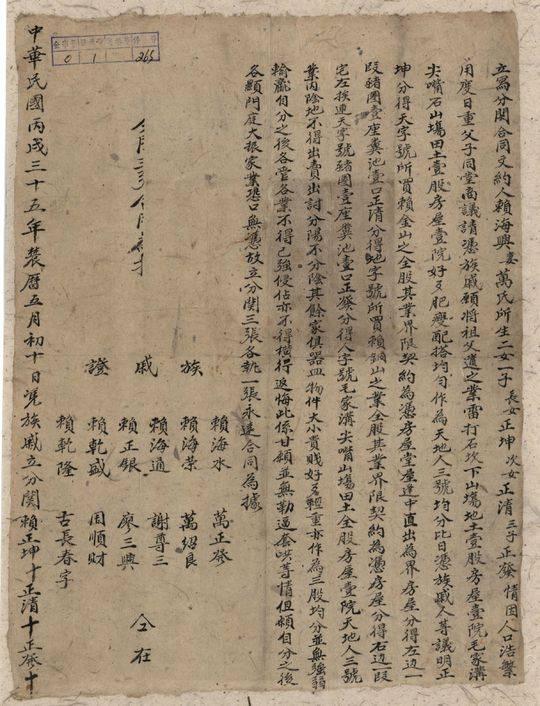 立寫分關合同文約人賴海興妻萬氏所生二女一子長女正坤次女正清三子正發情因人口浩繁
用度日重父子同堂商議請憑族戚願將祖父遺之業雷打石坎下山塲地土壹股房屋壹院毛家溝
尖嘴石山塲田土壹股房屋壹院好歹肥瘦配搭均勻作為天地人三號均分比日憑族戚人等議明正
坤分得天字號所買賴金山之全股其業界限契約為憑房屋堂屋逢中直出為界房屋分得左邊一
段豬圈壹座糞池壹口正清分得地字號所買賴銅山之業全股其業界限契約為憑房屋分得右邊一段
宅左挨連天字號豬圈壹座糞池壹口正發分得人字號毛家溝尖嘴山塲田土全股房屋壹院天地人三號
業內陰地不得出賣出討分陽不分陰其餘家俱器皿物件大小貴賤好歹輕重亦作為三股均分並無強弱
輸虧自分之後各管各業不得已強侵佔亦不得橫行返悔此係甘願並無勒逼套哄等情但願自分之後
各顯門庭大振家業恐口無憑故立分關三張各執一張永遠合同為據
族 賴海水 賴海榮 萬正發 萬紹良
戚 賴海通 賴正銀 謝尊三 廖三興 仝在
證 賴乾盛 賴乾隆 周順財 古長春字
中華民國丙戌三十五年農曆五月初十日憑族戚立分關賴正坤十正清十正發十
265
0 1